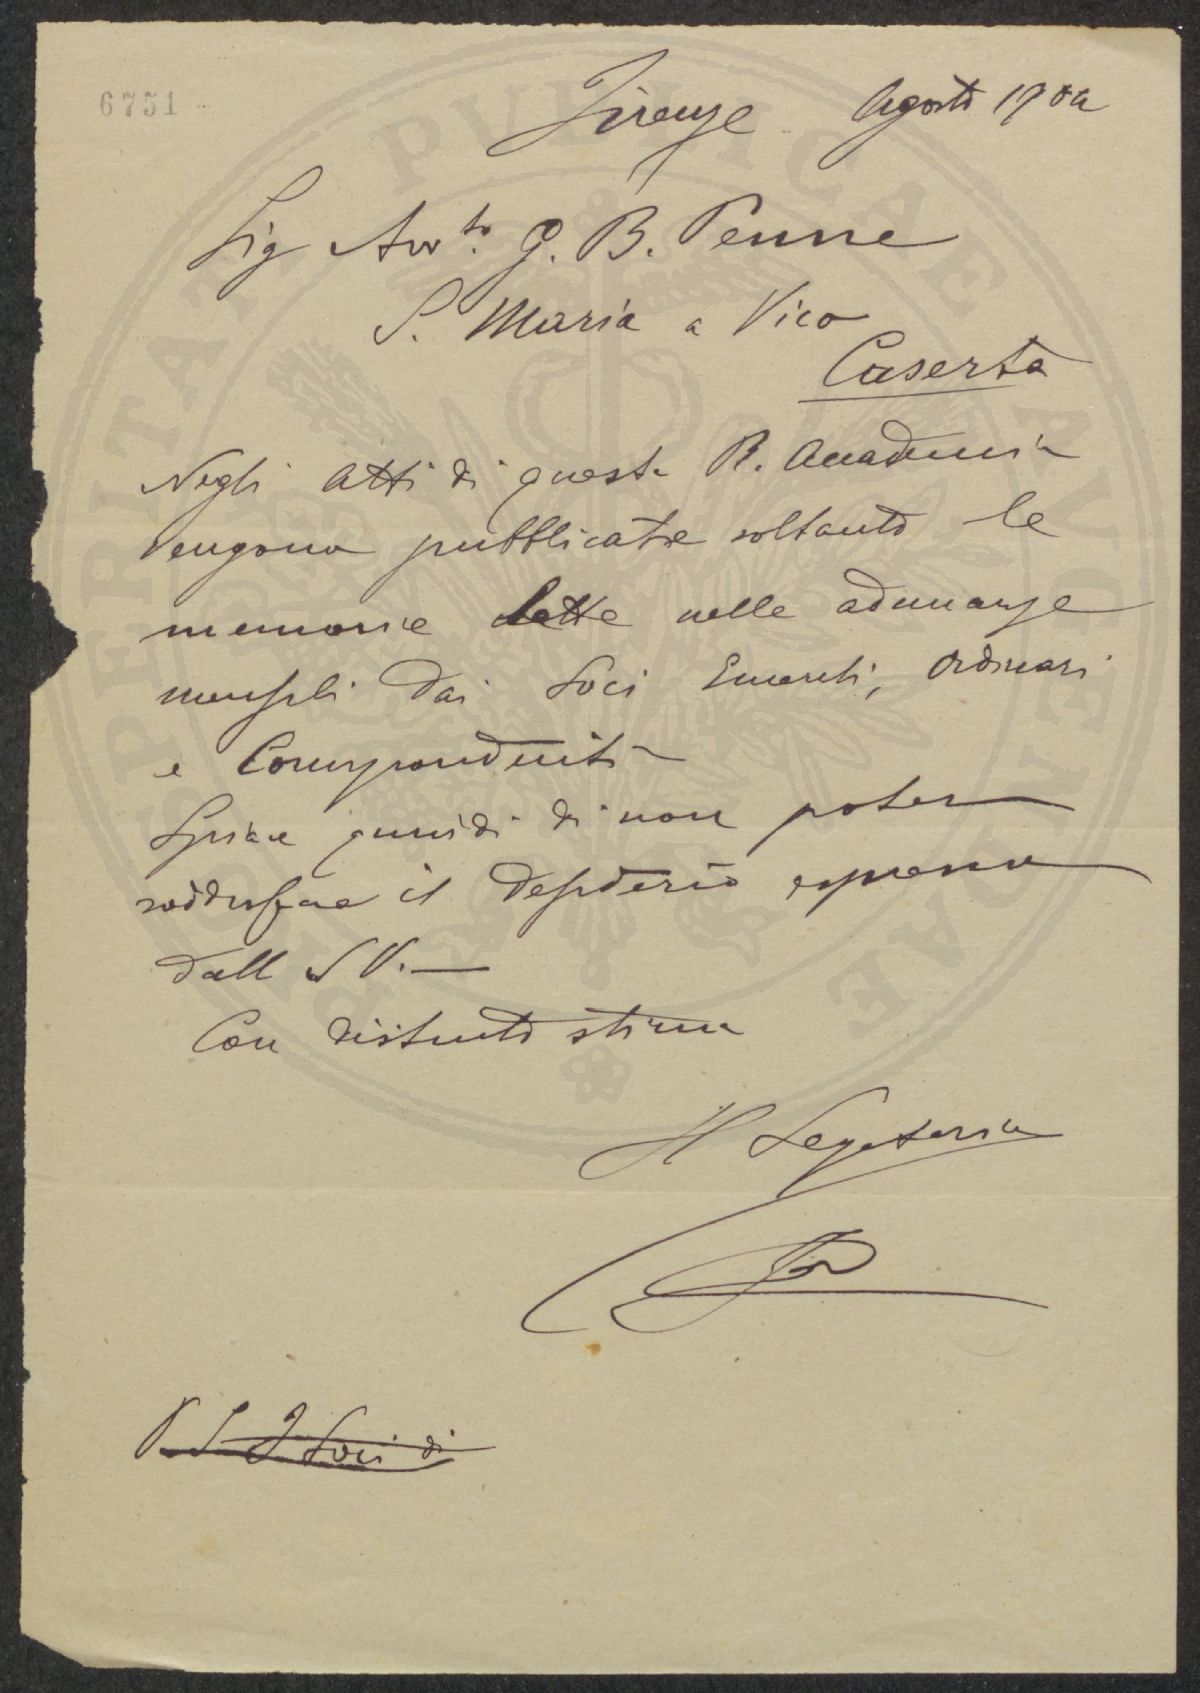 6751
Firenze Agosto 1904
Sig Avv.to G. B. Penne
S. Maria a Vico
Caserta
Negli Atti di questa R. Accademia
vengono pubblicate soltanto le
memorie lette nelle adunanze
mensili dai Soci Emeriti, Ordinari
e Corrispondenti
Spiace quindi di non poter
soddisfare il desiderio espresso
dall S V. —
Con distinta stima
Il Segretario
P S I Soci di
PROSPERITATI PUBLICAE AUGENDAE